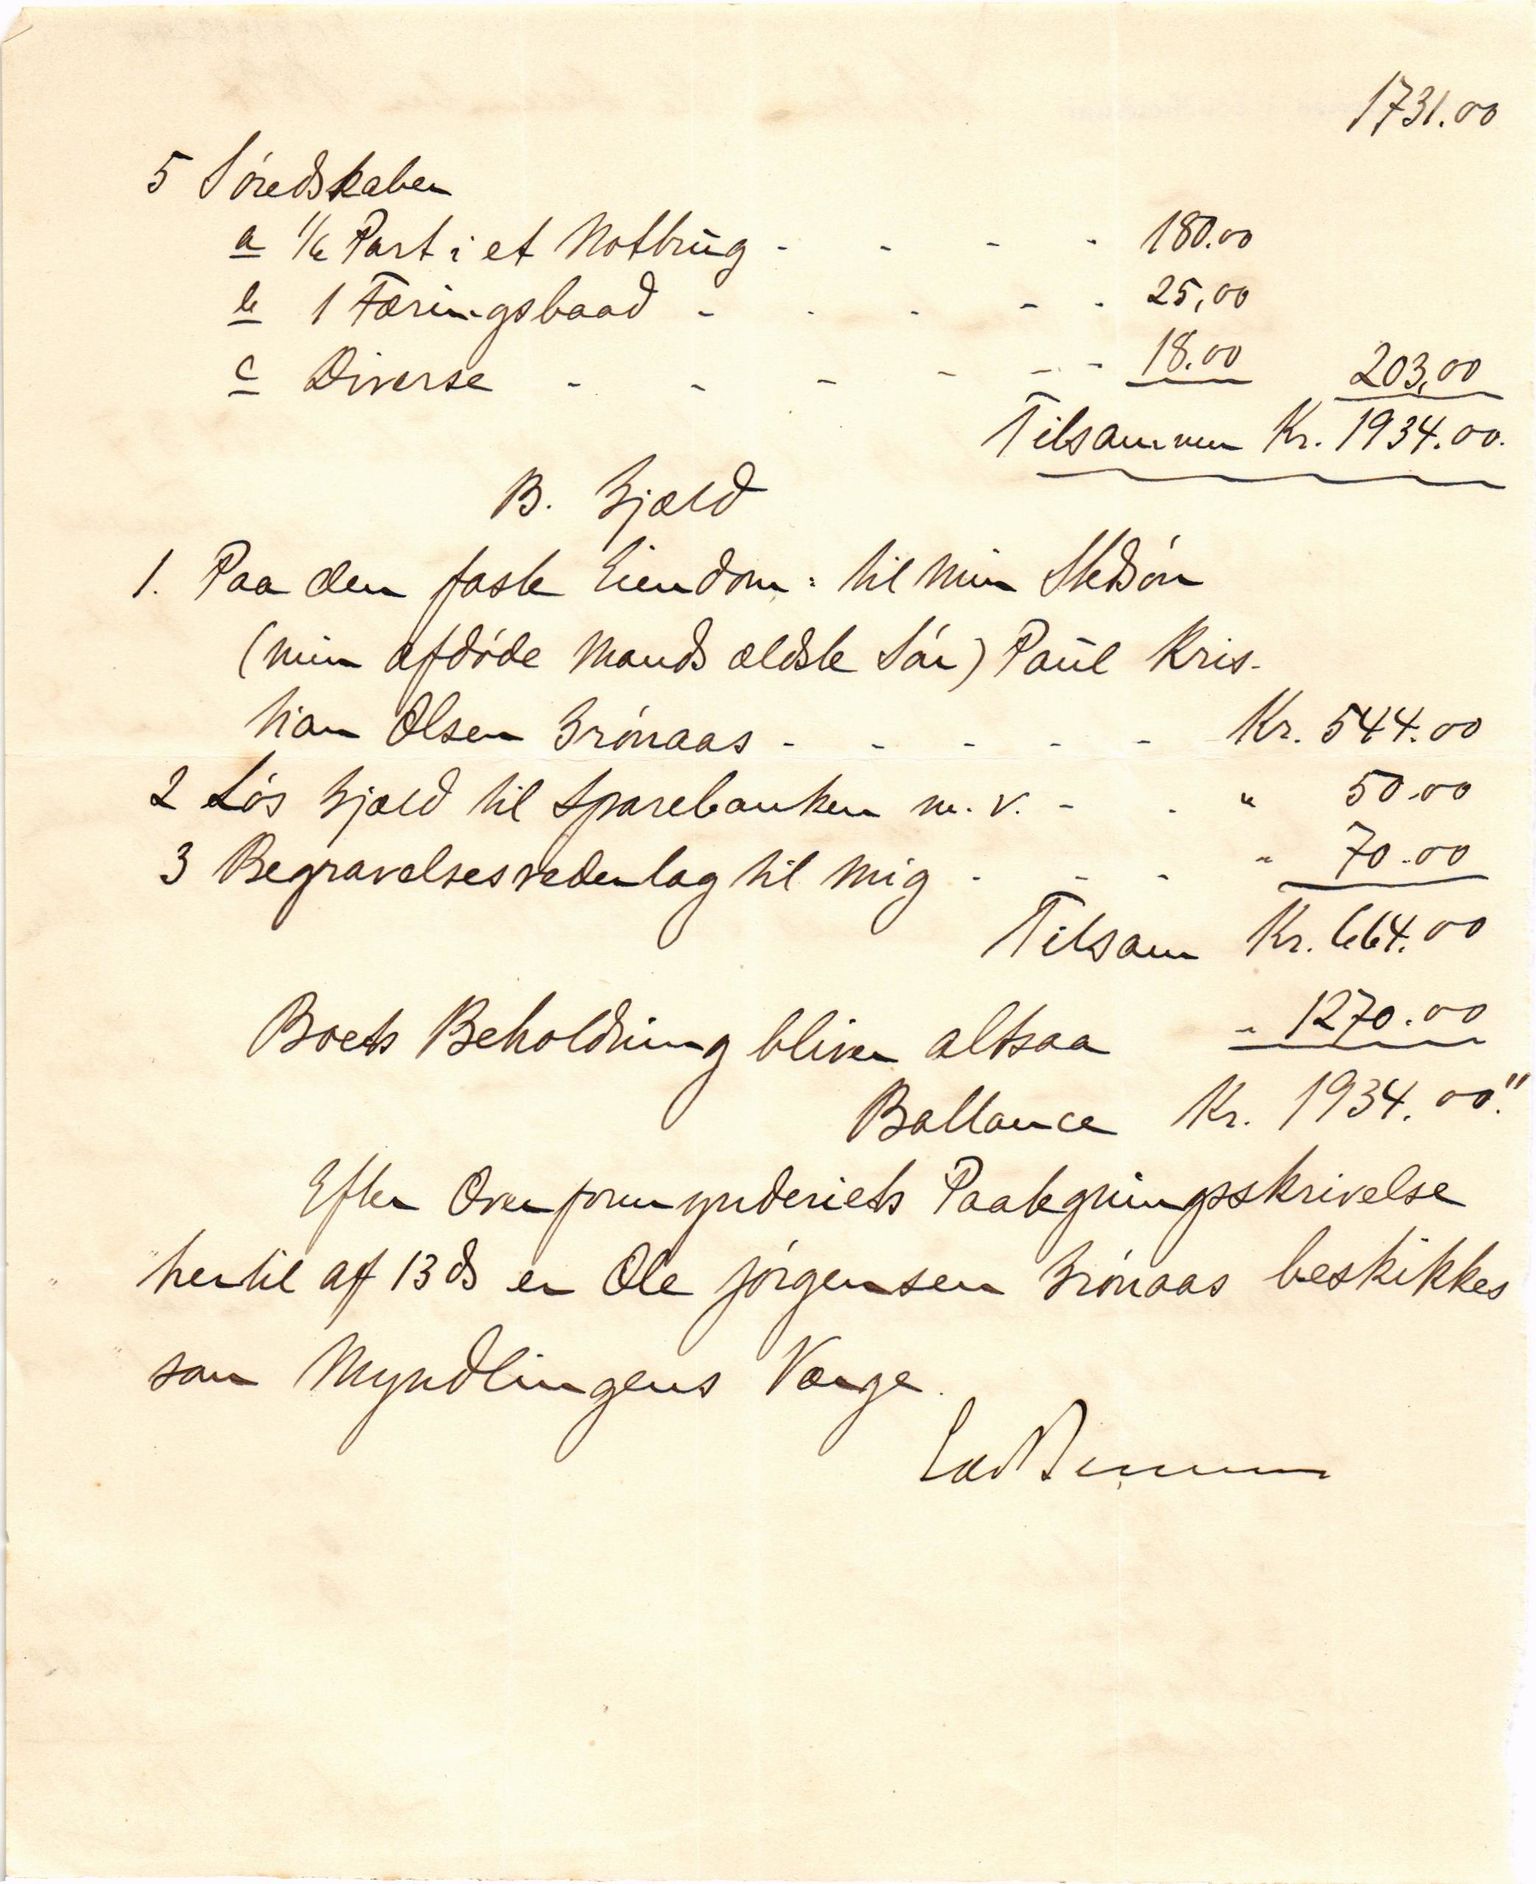 1731.00
5 Söredskaber
a 1/6 Part i et Notbrug - - - - 180.00
b 1 Færingsbaad - - - - - 25,00
c Diverse - - - - - - 18.00 203,00
Tilsammen Kr. 1934.00.
B. Gjæld
1. Paa den faste Eiendom: til min Stedsön
(min afdöde Mands ældste Sön) Paul Kris-
tian Olsen Grönaas - - - - - Kr. 544.00
2 Lös Gjæld til Sparebanken m. v. - - " 50.00
3 Begravelsesvederlag til mig - - - " 70.00
Tilsam Kr. 664.00
Boets Beholdning bliver altsaa " 1270.00
Ballance Kr. 1934.00."
Efter Overformynderiets Paategningsskrivelse
hertil af 13 ds er Ole Jörgensen Grönaas beskikkes
som Myndlingens Værge.